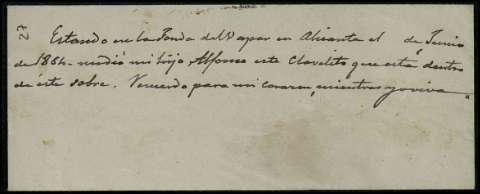 27
Estando en la Fonda del Vapor en Alicante el de Junio
de 1864 me dió mi hijo Alfonso este Clavelito que está dentro
de éste sobre. Recuerdo para mi corazon, mientras yo viva.